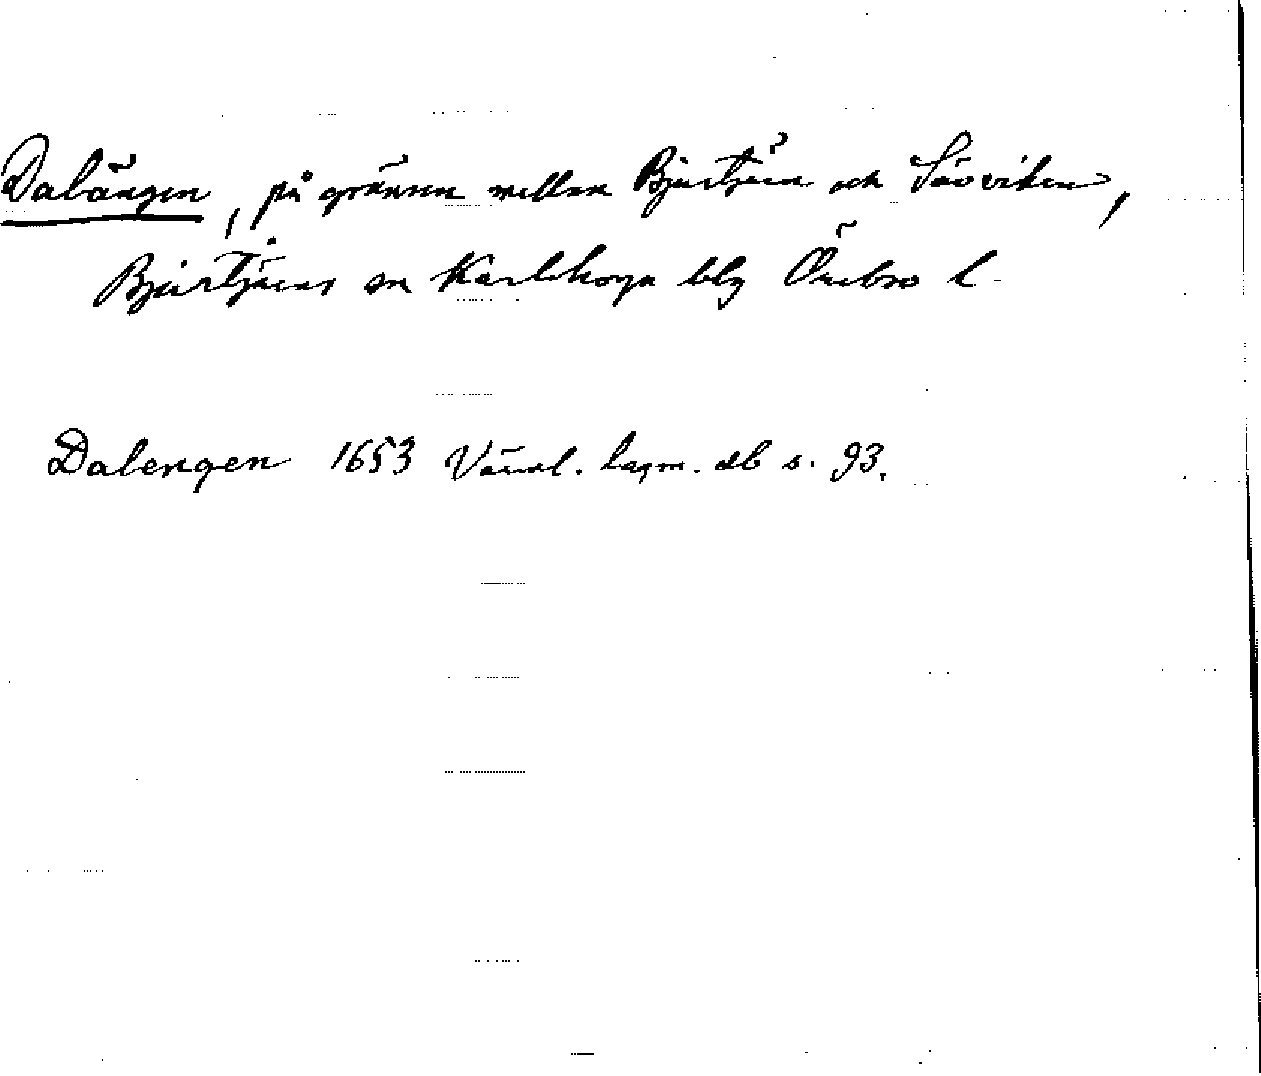 Dalängen, på gränsen mellan Bjurtjärn och Såviken,
Bjurtjärns sn Karlskoga blg Örebro l
Dalengen 1653 Värml. lagm. db s. 93.